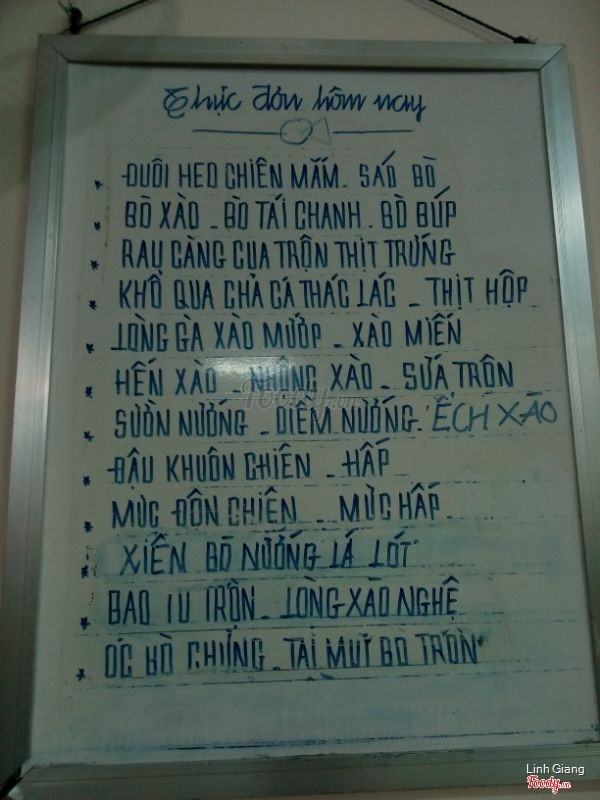 Thực đơn hôm nay
* ĐUÔI HEO CHIÊN MẮM - SÁO BÒ
* BÒ XÀO - BÒ TÁI CHANH - BÒ BÚP
* RAU CÀNG CUA TRỘN THỊT TRỨNG
* KHỔ QUA CHẢ CÁ THÁC LÁC - THỊT HỘP
* LÒNG GÀ XÀO MƯỚP - XÀO MIẾN
* HẾN XÀO - NHỘNG XÀO - SỨA TRỘN
* SƯỜN NƯỚNG - DIỀM NƯỚNG. ẾCH XÀO
* ĐẬU KHUÔN CHIÊN - HẤP
* MỰC ĐÔN CHIÊN - MỰC HẤP -
* XIÊN BÒ NƯỚNG LÁ LỐT
* BAO TU TRỘN - LÒNG XÀO NGHỆ
* ÓC BÒ CHƯNG - TAI MUI BÒ TRỘN
Foody.vn
Linh Giang
Foody.vn